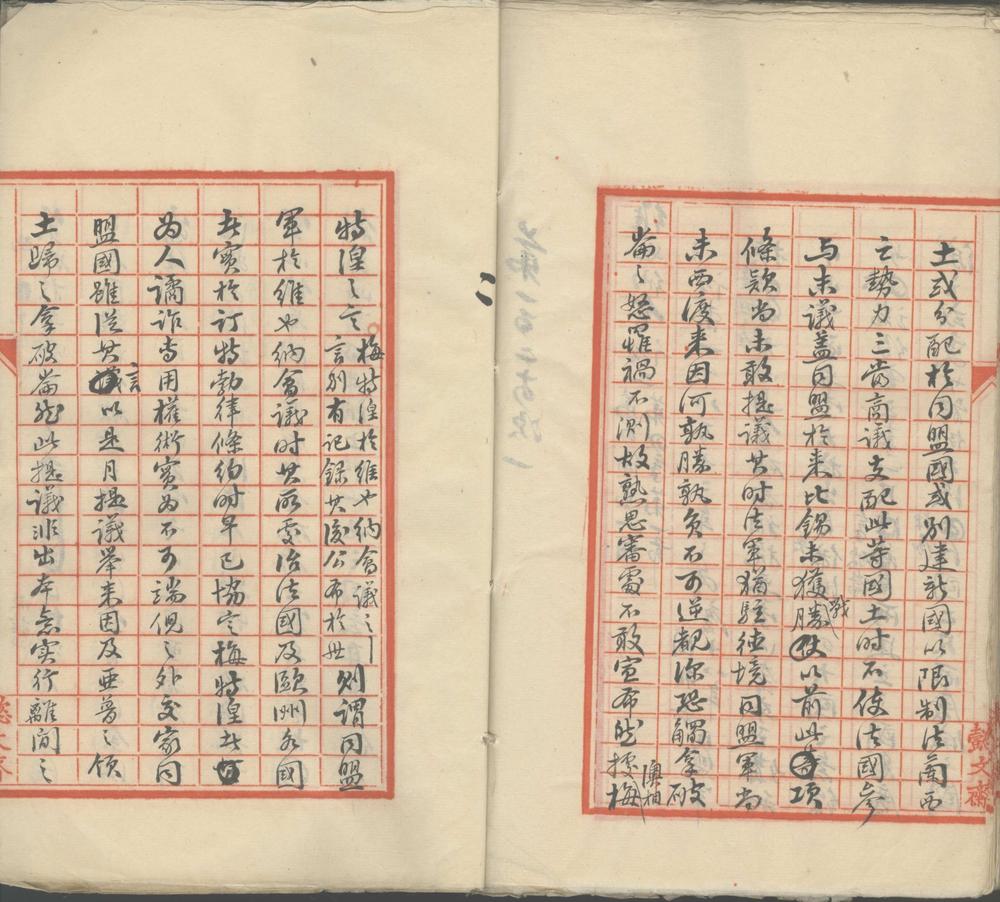 土或分配於同盟國或別建新國以限制法蘭西
之勢力三當商議支配此等國土時不使法國參
与末議蓋同盟於來比錫未獲勝戰以前此項
條款尚未敢提議其时法軍猶駐德境同盟軍尚
未西渡來因河孰勝孰負不可逆覩深恐觸拿破
崙之怒罹禍不測故熟思審處不敢宣布然據梅
澳相
特涅之言
梅特涅於維也納會議之
言別有記録其後公布於世
則謂同盟
軍於維也納會議时其所處治法國及歐洲各國
者實於訂特勃律條約时早已協定梅特涅者
为人譎詐专用權術實为不可端倪之外交家同
盟國雖從其言以是月提議舉來因及亜普之領
土歸之拿破崙然此提議非出本意实行離間之
懿文齋